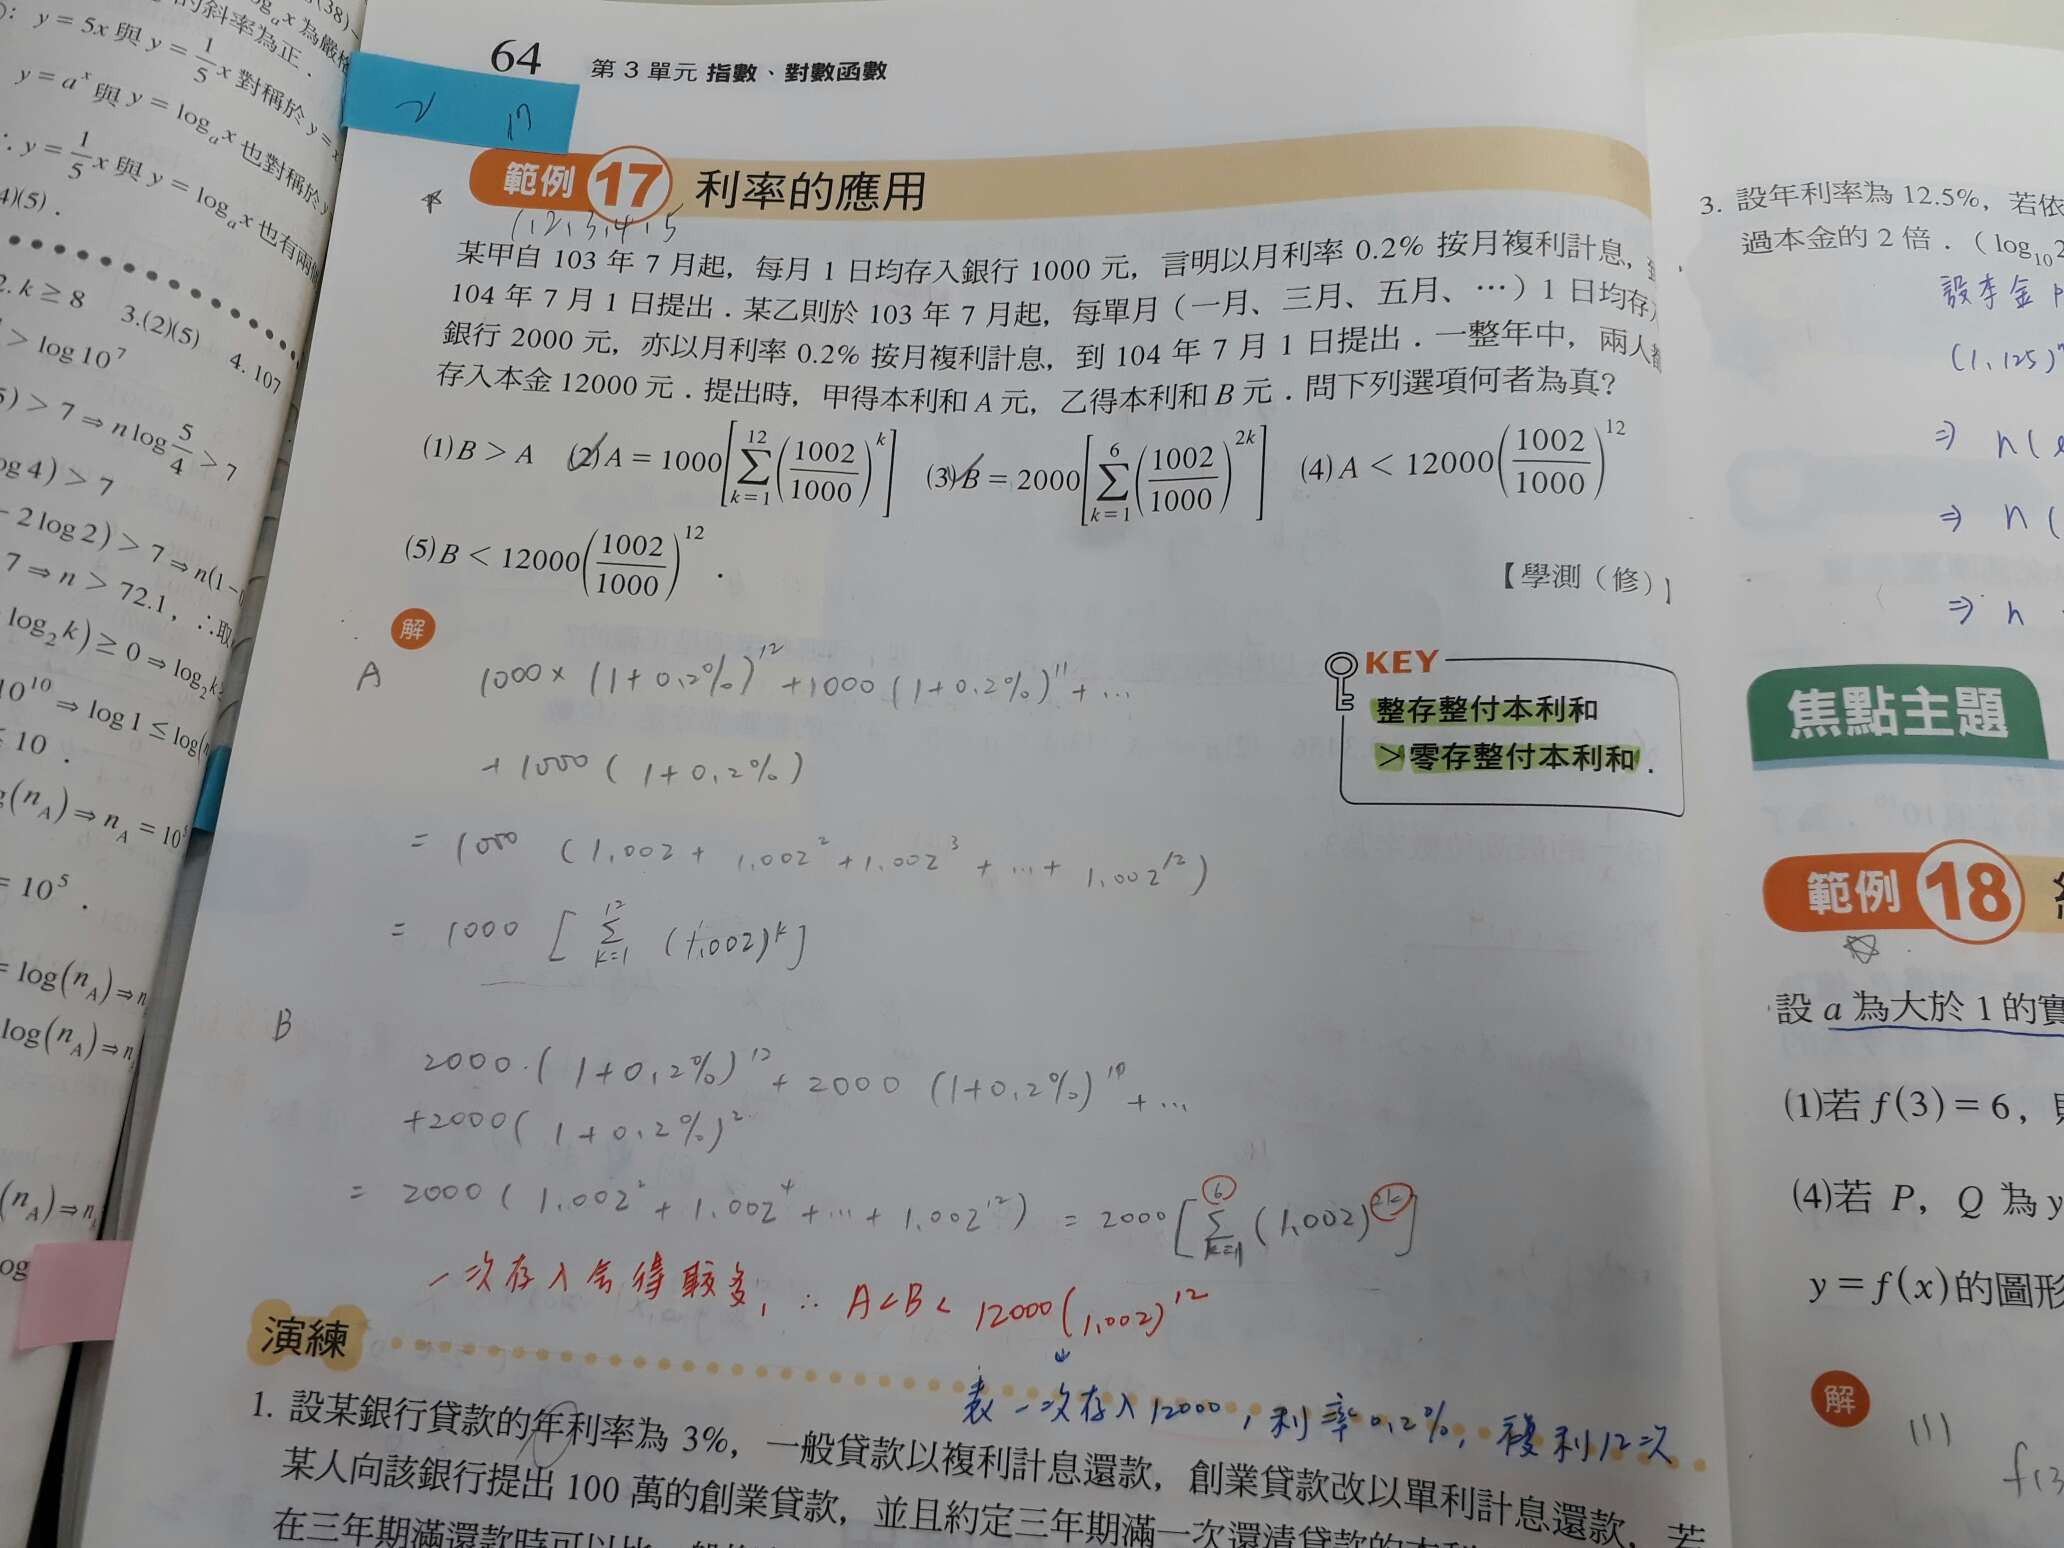 (38)
log_a x 為嚴格
的斜率為正．
y = 5x 與 y = 1/5 x 對稱於 y = x
y = a^x 與 y = log_a x 也對稱於 y
∴ y = 1/5 x 與 y = log_a x 也有兩個
4)(5)．
2. k ≥ 8 3.(2)(5) 4. 107
> log10^7
5) > 7 ⇒ n log 5/4 > 7
og 4) > 7
− 2 log 2) > 7 ⇒ n(1 −
7 ⇒ n > 72.1，∴取
log_2 k) ≥ 0 ⇒ log_2 k ≥
10^10 ⇒ log 1 ≤ log(n
≤ 10．
g(n_A) ⇒ n_A = 10^5
= 10^5．
= log(n_A) ⇒ n
log(n_A) ⇒ n
(n_A) ⇒ n
og
64 第 3 單元 指數、對數函數
2 17
範例 17 利率的應用
1,2,3,4,5
某甲自 103 年 7 月起，每月 1 日均存入銀行 1000 元，言明以月利率 0.2% 按月複利計息，到
104 年 7 月 1 日提出．某乙則於 103 年 7 月起，每單月（一月、三月、五月、⋯）1 日均存入
銀行 2000 元，亦以月利率 0.2% 按月複利計息，到 104 年 7 月 1 日提出．一整年中，兩人都
存入本金 12000 元．提出時，甲得本利和 A 元，乙得本利和 B 元．問下列選項何者為真？
(1) B > A (2) A = 1000[∑_{k=1}^{12} (1002/1000)^k] (3) B = 2000[∑_{k=1}^{6} (1002/1000)^{2k}] (4) A < 12000(1002/1000)^12
(5) B < 12000(1002/1000)^12．
【學測（修）】
解
A 1000 × (1+0.2%)^12 + 1000 (1+0.2%)^11 + ...
+ 1000 ( 1+0.2%)
= 1000 ( 1.002 + 1.002^2 + 1.002^3 + ... + 1.002^12 )
= 1000 [ ∑_{k=1}^{12} (1.002)^k ]
KEY
整存整付本利和
＞零存整付本利和．
B
2000·( 1+0.2%)^12 + 2000 (1+0.2%)^10 + ...
+2000( 1+0.2%)^2
= 2000 ( 1.002^2 + 1.002^4 + ... + 1.002^12 ) = 2000 [ ∑_{k=1}^{6} (1.002)^{2k} ]
一次存入會得較多, ∴ A < B < 12000 (1.002)^12
↓
表一次存入12000, 利率0.2%, 複利12次
演練
1. 設某銀行貸款的年利率為 3%，一般貸款以複利計息還款，創業貸款改以單利計息還款，若
某人向該銀行提出 100 萬的創業貸款，並且約定三年期滿一次還清貸款的本利
在三年期滿還款時可以比一般
3. 設年利率為 12.5%，若依
過本金的 2 倍．（log_10 2
設本金 P
(1.125)^n
⇒ n(
⇒ n (
⇒ n
焦點主題
範例 18
設 a 為大於 1 的實
(1)若 f(3) = 6，
(4)若 P，Q 為 y
y = f(x) 的圖形
解
(1)
f(3